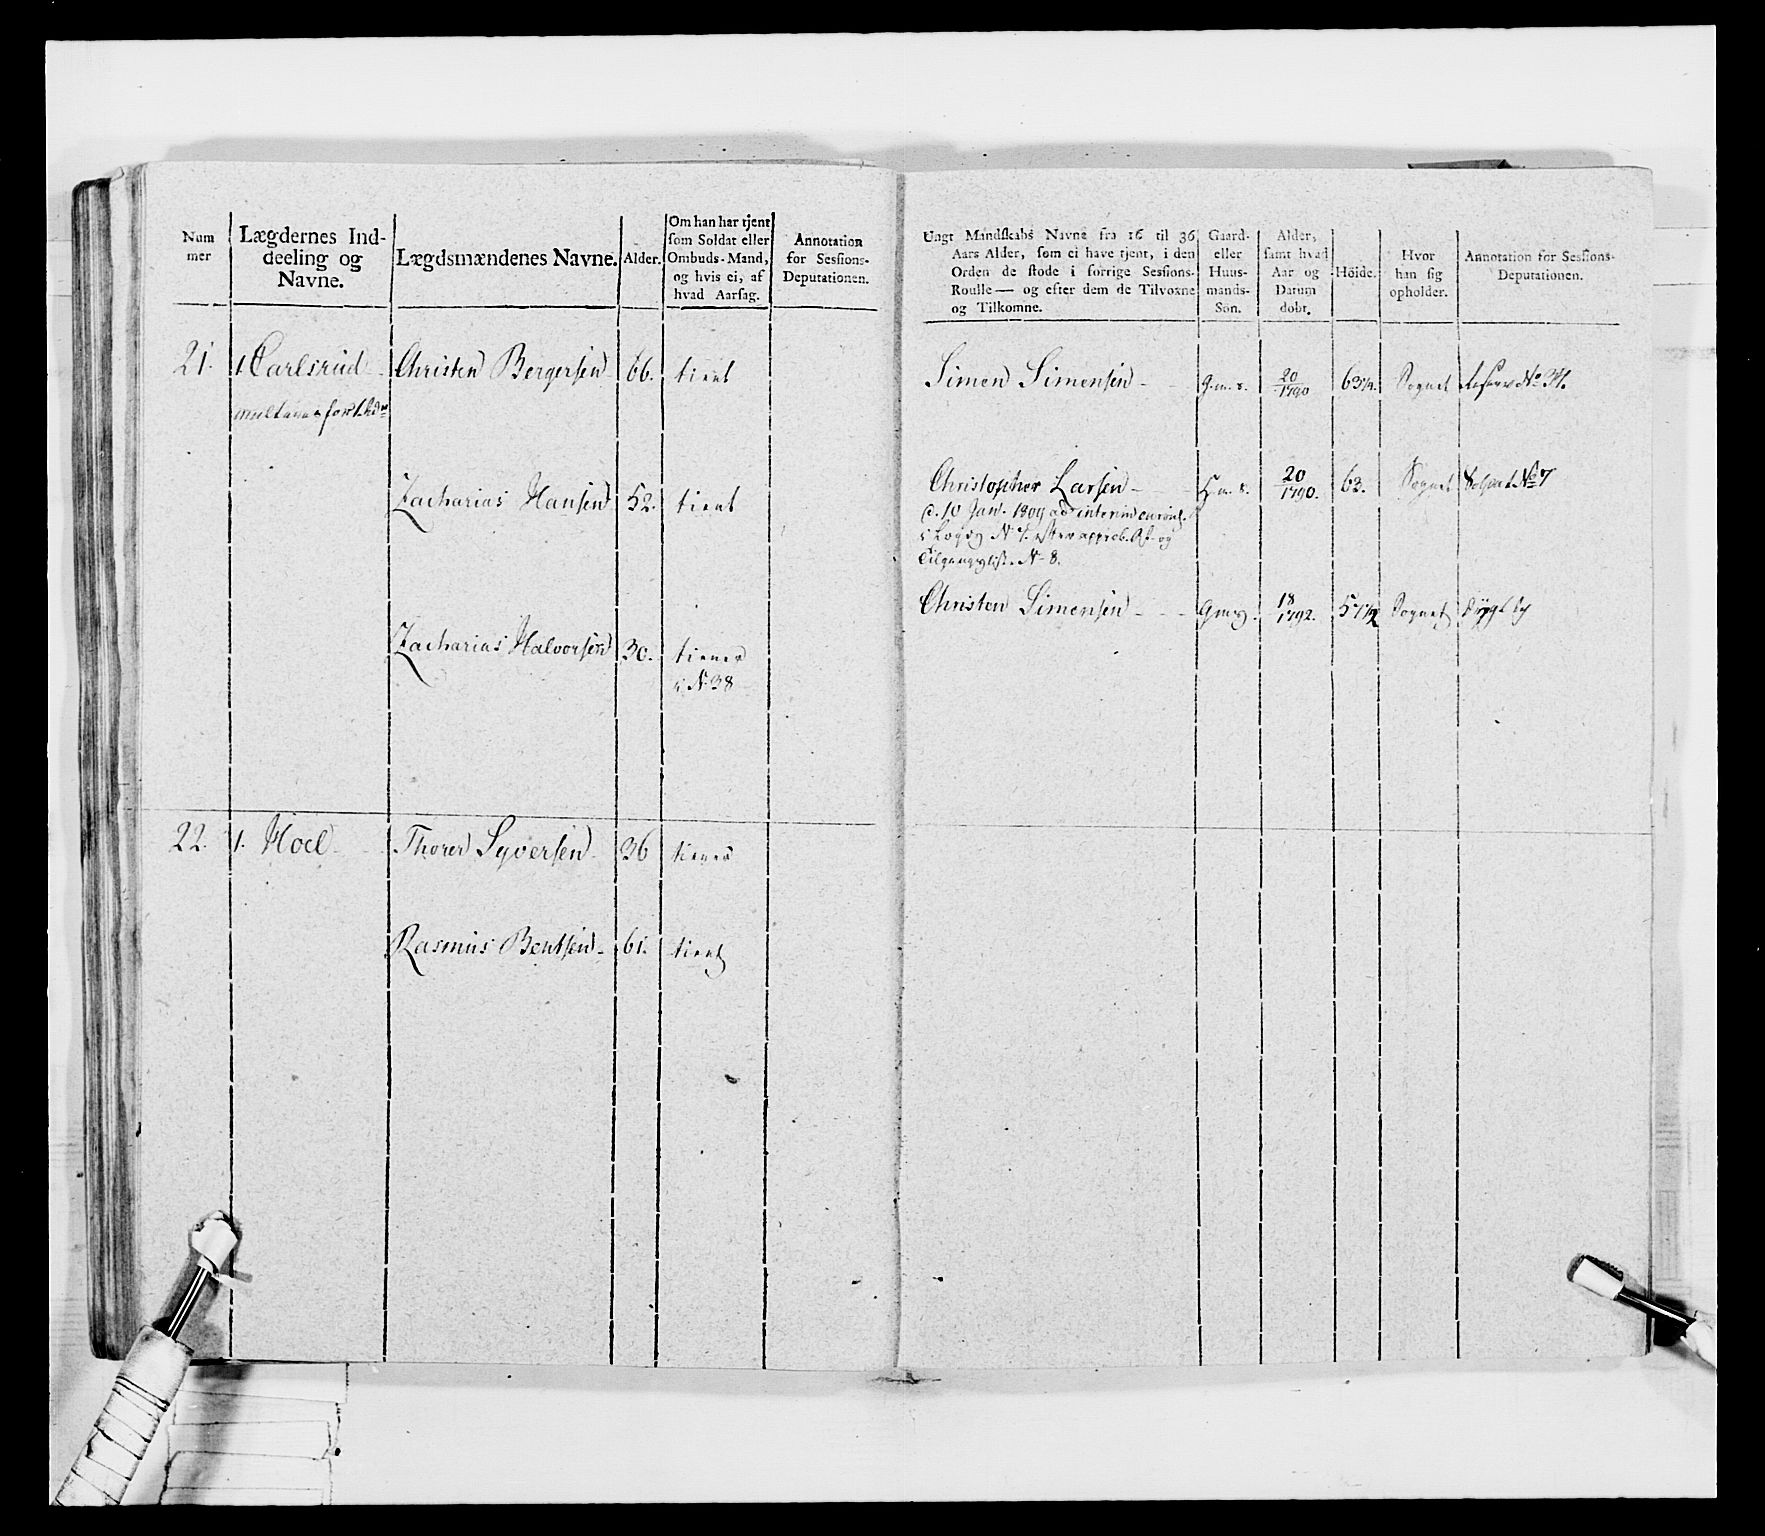 Num
mer
Lægdernes Ind-
deeling og
Navne.
Lægdsmændenes Navne.
Alder.
Om han har tjent
som Soldat eller
Ombuds-Mand,
og hvis ei, af
hvad Aarsag.
Annotation
for Sessions-
Deputationen.
21. 1 Carlsrud Christen Bergersen 66. tient
Zacharias Hansen 52. tient
Zacharias Halvorsen 30. tiener
i N. 38
22. 1. Hoel Thorer Syversen 36 tiener
Rasmus Bentsen 61. tient
Ungt Mandskabs Navne fra 16 til 36
Aars Alder, som ei have tjent, i den
Orden de stode i forrige Sessions-
Roulle — og efter dem de Tilvoxne
og Tilkomne.
Gaard-
eller
Huus-
mands-
Søn.
Alder,
samt hvad
Aar og
Datum
døbt.
Høide.
Hvor
han sig
opholder.
Annotation for Sessions-
Deputationen.
Simen Simensen G. m. s. 20/1790 63 1/4. Sognet No 34.
Christopher Larsen H. m. s. 20/1790. 63. Sognet No 7
d. 10 Jan. 1809 ad interim
i N 7.
Tilgangsliste N. 8.
Christen Simensen G m s. 18/1792. 57 1/2 Sognet